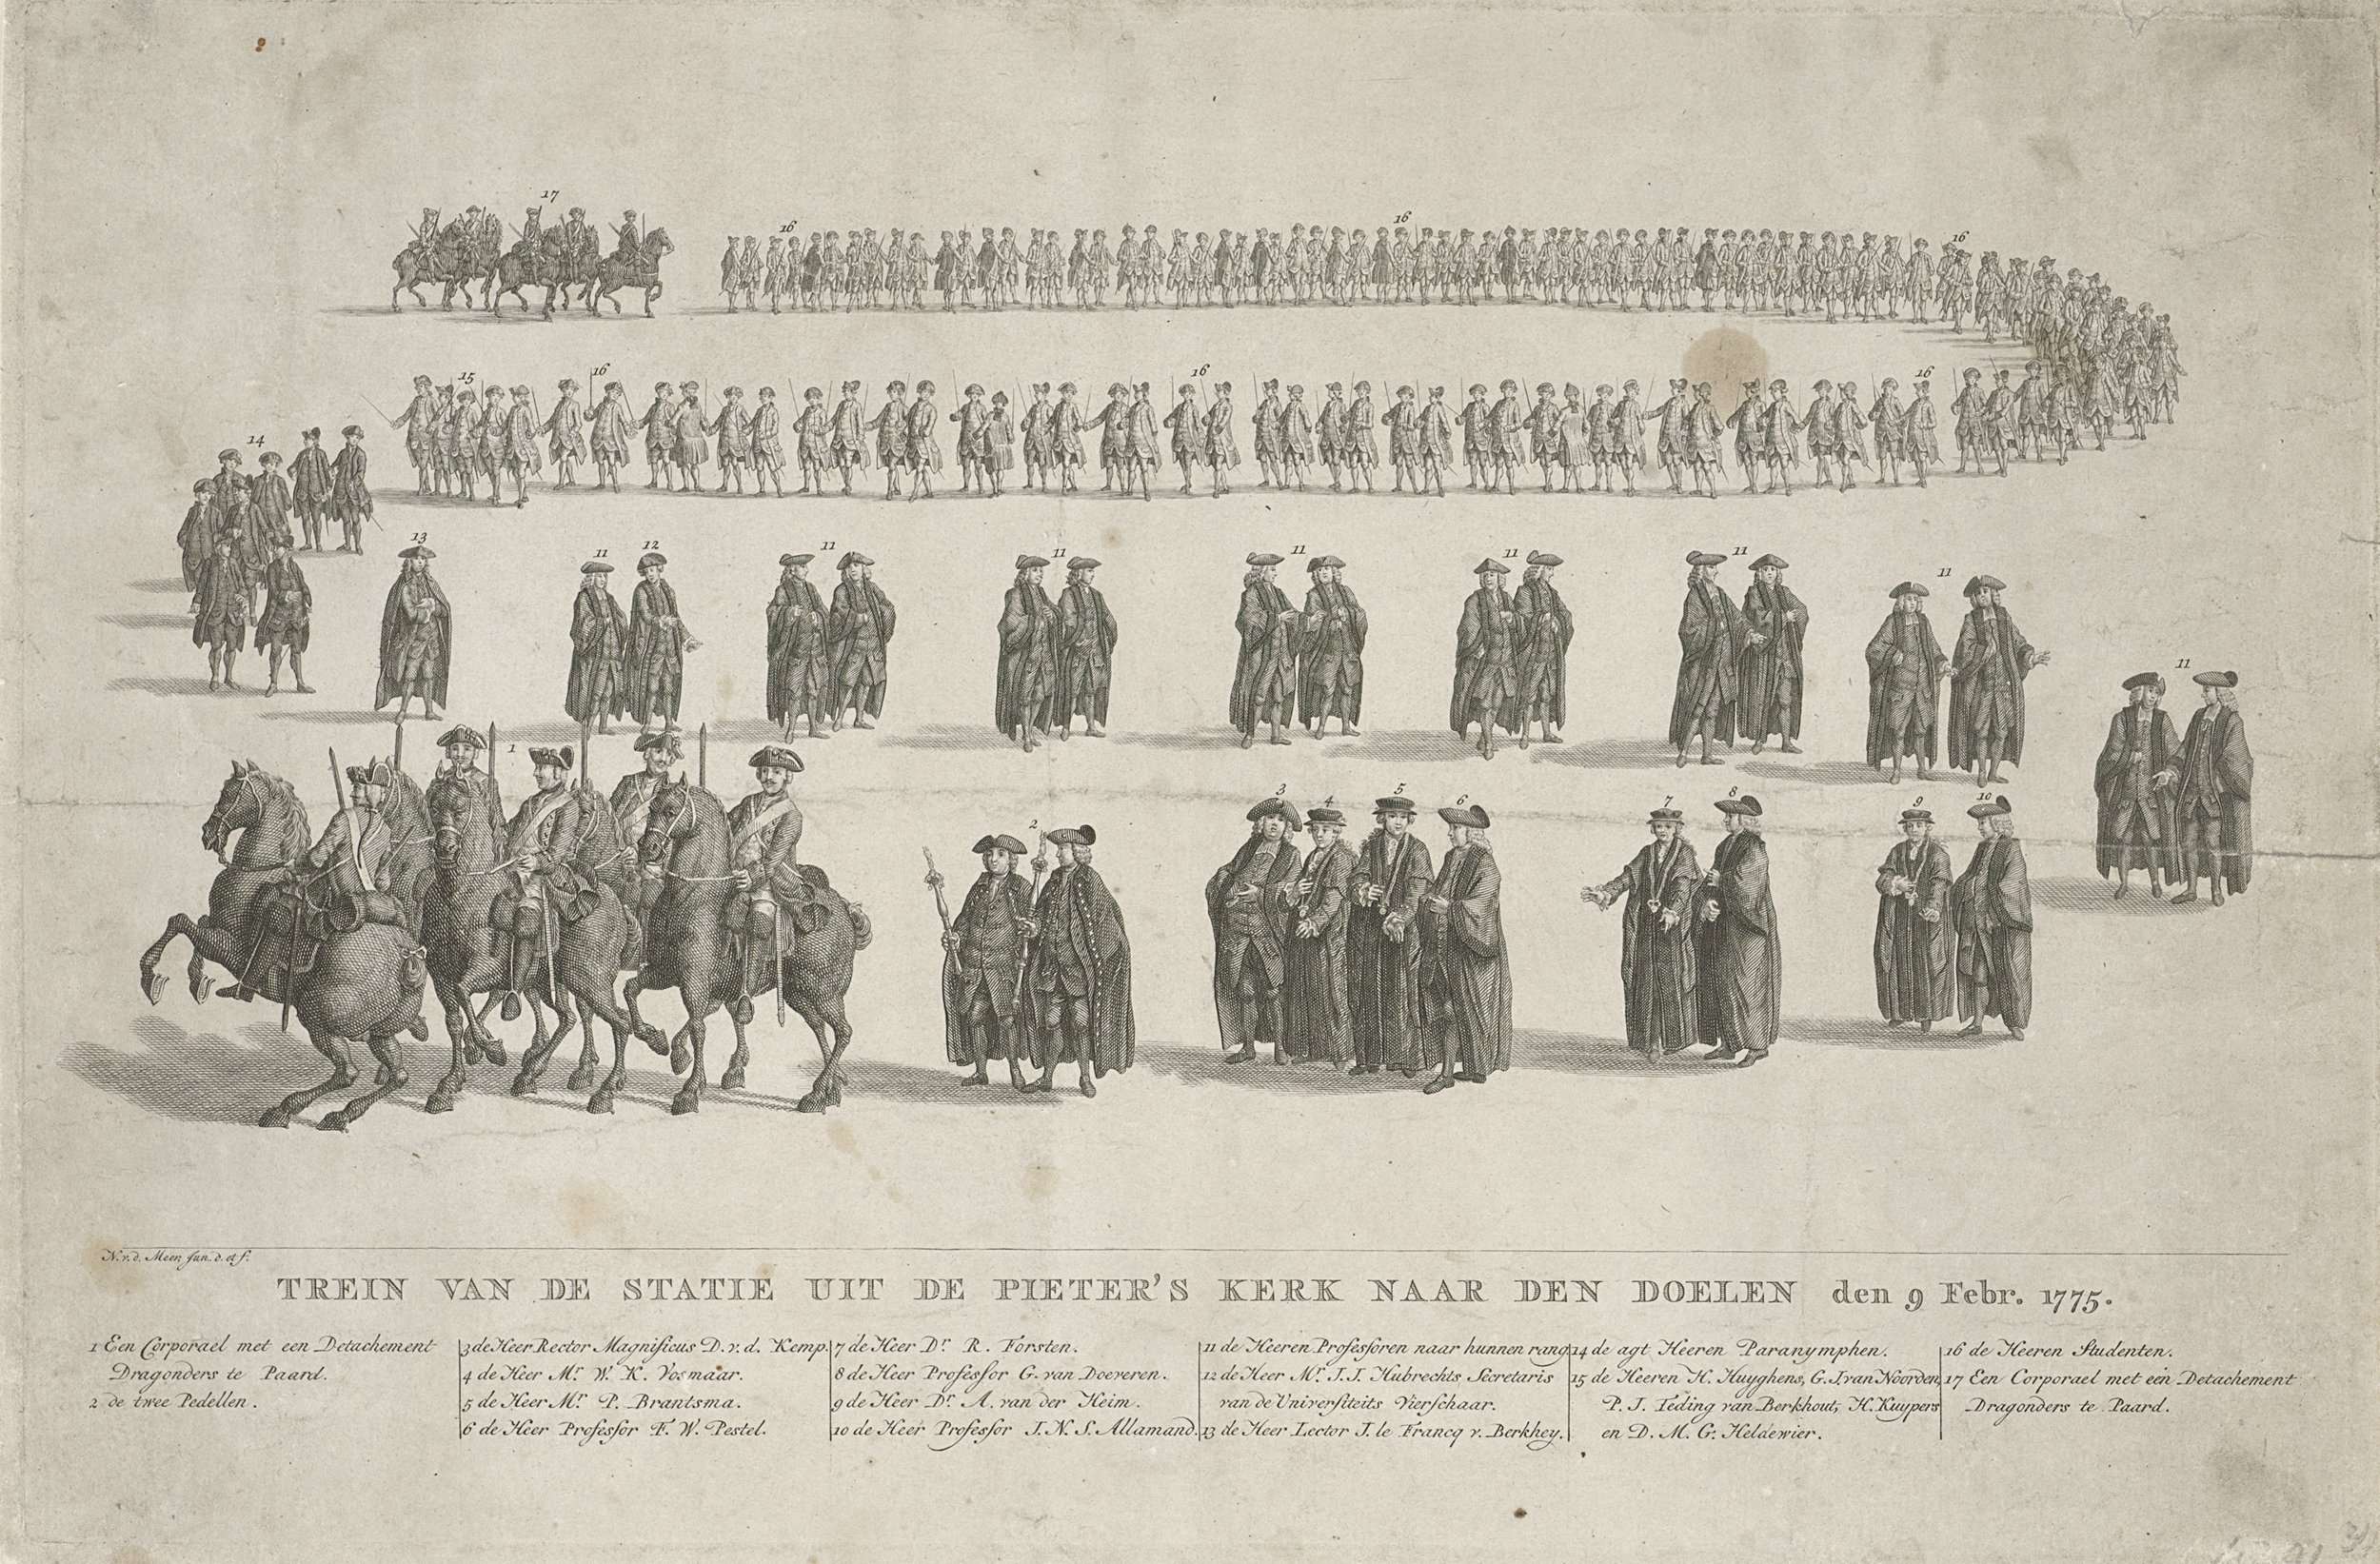 17
16
16
16
15
16
16
16
14
13
11
12
11
11
11
11
11
11
11
1
2
3
4
5
6
7
8
9
10
N. v. d. Meer, Jun. d. et f.
TREIN VAN DE STATIE UIT DE PIETER'S KERK NAAR DEN DOELEN den 9 Febr. 1775.
1 Een Corporael met een Detachement
Dragonders te Paard.
2 de twee Pedellen.
3 de Heer Rector Magnificus D. v. d. Kemp.
4 de Heer Mr. W. K. Vosmaar.
5 de Heer Mr. P. Brantsma.
6 de Heer Professor F. W. Pestel.
7 de Heer Dr. R. Forsten.
8 de Heer Professor G. van Doeveren.
9 de Heer Dr. A. van der Heim.
10 de Heer Professor J. N. S. Allamand.
11 de Heeren Professoren naar hunnen rang
12 de Heer Mr. J. J. Hubrechts Secretaris
van de Universiteits Vierschaar.
13 de Heer Lector J. le Francq v. Berkhey.
14 de agt Heeren Paranymphen.
15 de Heeren H. Huyghens, G. J. van Noorden,
P. J. Teding van Berkhout, H. Kuypers
en D. M. G. Heldewier.
16 de Heeren Studenten.
17 Een Corporael met een Detachement
Dragonders te Paard.